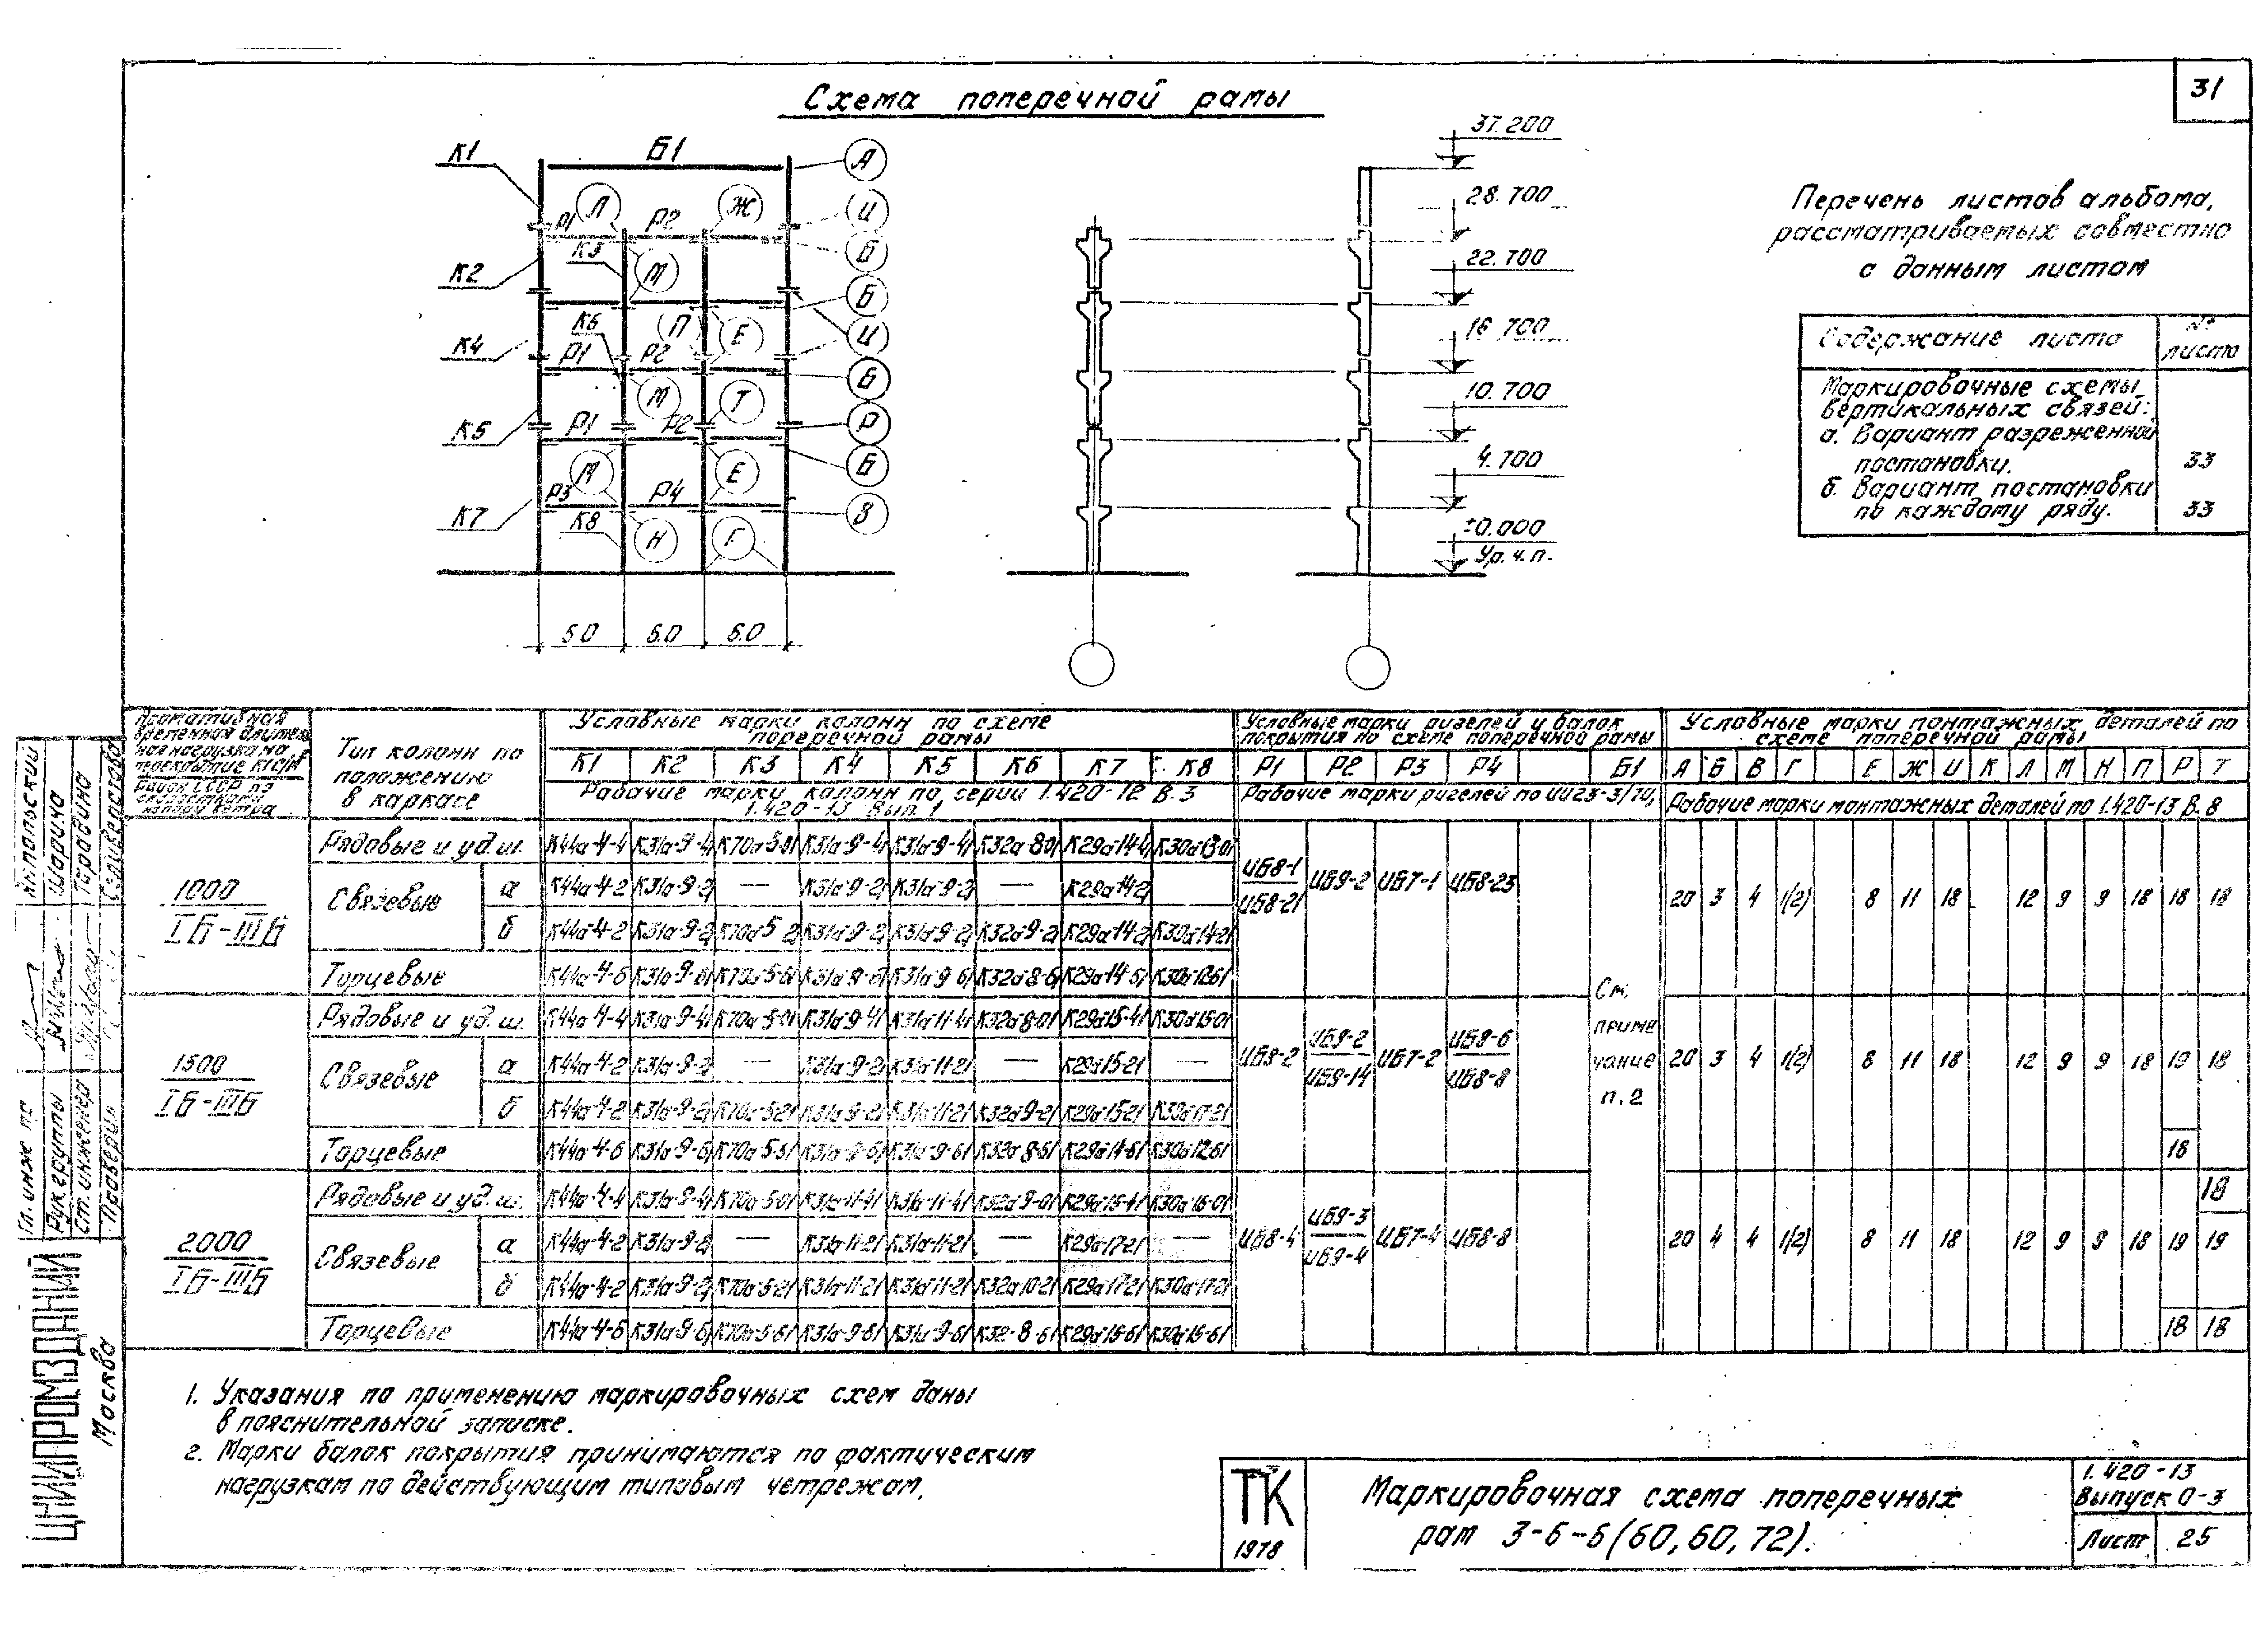 31
Схема поперечной рамы
К1
Б1
А
Л
Ж
Р1
Р2
И
К3
Б
К2
М
Б
К6
П
Е
И
К4
Р1
Р2
Б
М
Т
К5
Р1
Р2
Р
М
Е
Б
К7
Р3
Р4
В
К8
Н
Г
6.0 6.0
37.200
28.700
22.700
16.700
10.700
4.700
±0.000
Ур.ч.п.
Перечень листов альбома,
рассматриваемых совместно
с данным листом
Содержание листа
№ листа
Маркировочные схемы
вертикальных связей:
а. Вариант разреженной
постановки. 33
б. Вариант постановки
по каждому ряду. 33
Нормативная
временная длитель
ная нагрузка на
перекрытие
Район СССР по
скоростному
напору ветра
Тип колонн по
положению
в каркасе
Условные марки колонн по схеме
поперечной рамы
К1 К2 К3 К4 К5 К6 К7 К8
Рабочие марки колонн по серии 1.420-12 в.3
1.420-13 Вып. 1
Условные марки ригелей и балок
покрытия по схеме поперечной рамы
Р1 Р2 Р3 Р4 Б1
Рабочие марки ригелей по ИИ23-3/70,
Условные марки монтажных деталей по
схеме поперечной рамы
А Б В Г Е Ж И К Л М Н П Р Т
Рабочие марки монтажных деталей по 1.420-13 В.8
1000
IБ-IIIБ
Рядовые и уд.ш. К44а-4-4 К31а-9-41 К70а-5-01 К31а-9-41 К31а-9-41 К32а-8-01 К29а-14-41 К30а-13-01
Связевые
а К44а-4-2 К31а-9-21 — К31а-9-21 К31а-9-21 — К29а-14-21
б К44а-4-2 К31а-9-21 К70а-5-21 К31а-9-21 К31а-9-21 К32а-9-21 К29а-14-21 К30а-14-21
Торцевые К44а-4-6 К31а-9-61 К70а-5-61 К31а-9-61 К31а-9-61 К32а-8-61 К29а-14-61 К30а-12-61
ИБ8-1
ИБ8-21
ИБ9-2 ИБ7-1 ИБ8-23
20 3 4 1(2) 8 11 18 12 9 9 18 18 18
См.
приме
чание
п.2
1500
IБ-IIIБ
Рядовые и уд.ш. К44а-4-4 К31а-9-41 К70а-5-01 К31а-9-41 К31а-11-41 К32а-8-01 К29а-15-41 К30а-15-01
Связевые
а К44а-4-2 К31а-9-21 — К31а-9-21 К31а-11-21 — К29а-15-21 —
б К44а-4-2 К31а-9-21 К70а-5-21 К31а-9-21 К31а-11-21 К32а-9-21 К29а-15-21 К30а-17-21
Торцевые К44а-4-6 К31а-9-61 К70а-5-61 К31а-9-61 К31а-9-61 К32а-8-61 К29а-14-61 К30а-12-61
ИБ8-2
ИБ9-2
ИБ9-14
ИБ7-2
ИБ8-6
ИБ8-8
20 3 4 1(2) 8 11 18 12 9 9 18 19 18
18
2000
IБ-IIIБ
Рядовые и уд.ш. К44а-4-4 К31а-9-41 К70а-5-01 К31а-11-41 К31а-11-41 К32а-9-01 К29а-15-41 К30а-16-01
Связевые
а К44а-4-2 К31а-9-21 — К31а-11-21 К31а-11-21 — К29а-17-21 —
б К44а-4-2 К31а-9-21 К70а-5-21 К31а-11-21 К31а-11-21 К32а-10-21 К29а-17-21 К30а-17-21
Торцевые К44а-4-6 К31а-9-61 К70а-5-61 К31а-9-61 К31а-9-61 К32-8-61 К29а-15-61 К30а-15-61
ИБ8-4
ИБ9-3
ИБ9-4
ИБ7-4 ИБ8-8
18
20 4 4 1(2) 8 11 18 12 9 9 18 19 19
18 18
1. Указания по применению маркировочных схем даны
в пояснительной записке.
2. Марки балок покрытия принимаются по фактическим
нагрузкам по действующим типовым чертежам.
ТК
1978
Маркировочная схема поперечных
рам 3-6-6(60,60,72).
1.420-13
Выпуск 0-3
Лист 25
Гл. инж пр
Рук группы
Ст. инженер
Проверил
Ямпольский
Шарина
ЦНИИПРОМЗДАНИЙ
Москва